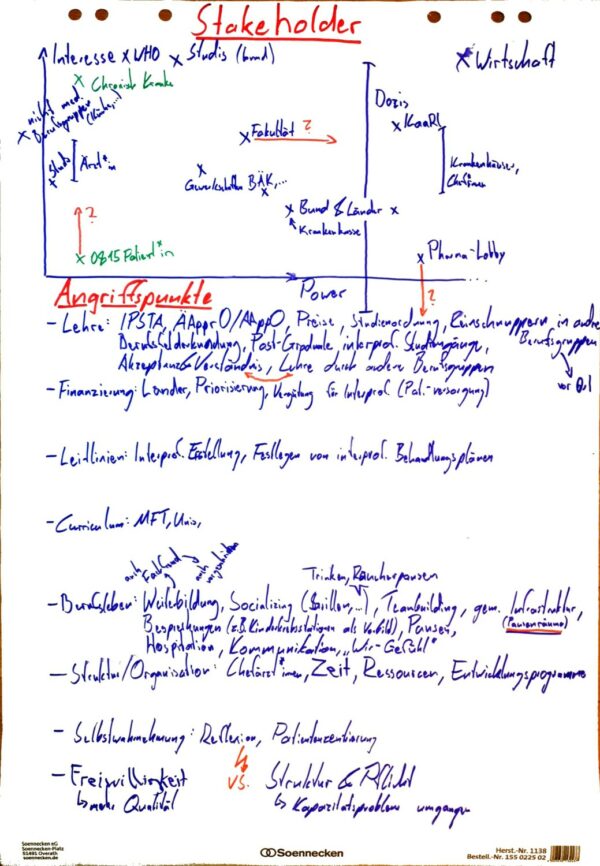 Stakeholder
Interesse x WHO x Studis (bund) x Wirtschaft
x Chronisch Kranke
x nicht med. Berufsgruppen (Köche,...)
Dozis
x KaaRl
x Fakultät ?
Krankenhäuser, Chef*innen
x Studis
Ärzt*in
x
Gewerkschaften BÄK,...
x
x Bund & Länder x
Krankenkasse
?
x 0815 Patient*in
x Pharma-Lobby
Power
?
Angriffspunkte
- Lehre: IPSTA, ÄApprO/AAppO, Preise, Studienordnung, Reinschnuppern in andere Berufsgruppen
Berufsfelderkundung, Post-Graduale interprof. Studiengänge,
Akzeptanz & Verständnis, Lehre durch andere Berufsgruppen
vor Ort
- Finanzierung: Länder, Priorisierung, Vergütung für Interprof (Pali-versorgung)
- Leitlinien: Interprof. Erstellung, Festlegen von interprof. Behandlungsplänen
- Curriculum: MFT, Unis,
auch Fachfremd
Trinken, Raucherpausen
- Berufsleben: Weiterbildung, Socializing (Grillen,...), Teambuilding, gem. Infrastruktur,
(Pausenräume)
Besprechungen (z.B. Kinderkrebsstationen als Vorbild), Pausen,
Hospitation, Kommunikation, „Wir-Gefühl"
- Struktur/Organisation: Chefärzt*innen, Zeit, Ressourcen, Entwicklungsprogramme
- Selbstwahrnehmung: Reflexion, Patientenzentrierung
- Freiwilligkeit vs. Struktur & Pflicht
↳ mehr Qualität ↳ Kapazitätsprobleme umgangen
Soennecken eG
Soennecken-Platz
51491 Overath
soennecken.de
Soennecken
Herst.-Nr. 1138
Bestell.-Nr. 155 0225 02